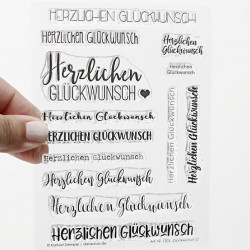 HERZLICHEN GLÜCKWUNSCH
HERZLICHEN GLÜCKWUNSCH
Herzlichen
GLÜCKWUNSCH
HERZLICHEN GLÜCKWUNSCH
HERZLICHEN GLÜCKWUNSCH
HERZLICHEN GLÜCKWUNSCH
Herzlichen Glückwunsch
Herzlichen Glückwunsch
HERZLICHEN GLÜCKWUNSCH
Herzlichen
Glückwunsch
Herzlichen
Glückwunsch
HERZLICHEN GLÜCKWUNSCH
Herzlichen
Glückwunsch